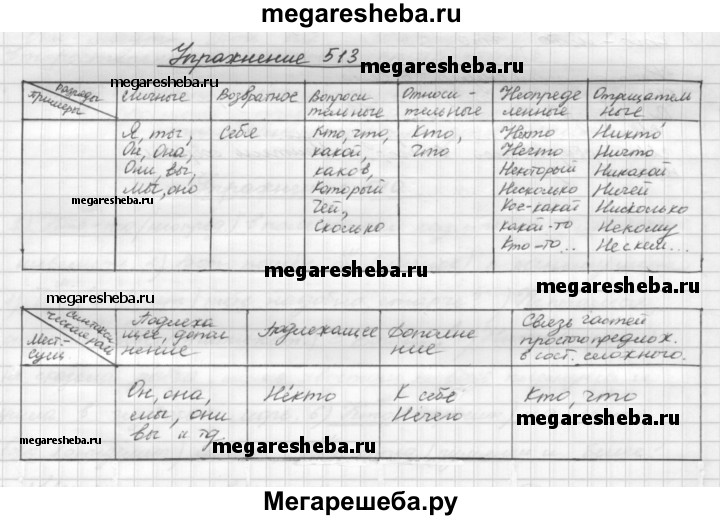 megaresheba.ru
Упражнение 513
Разряды
Примеры
Личные
Возвратное
Вопроси
тельные
Относи-
тельные
Неопреде
ленные
Отрицатель
ные.
megaresheba.ru
megaresheba.ru
Я, ты,
Он, она,
Они, вы,
Мы, оно
megaresheba.ru
Себя
Кто, что,
какой,
каков,
Который
Чей,
Сколько
Кто,
Что
Некто
Нечто
Некоторый
Несколько
Кое-какой
какой-то
Кто-то...
Никто
Ничто
Никакой
Ничей
Нисколько
Некому
Не с кем...
megaresheba.ru
megaresheba.ru
megaresheba.ru
Синтакси
ческая роль
Мест-
сущ
Подлежа
щее, допол
нение
Подлежащее
Дополне
ние
Связь частей
простого предлож.
в сост. сложного.
Он, она,
мы, они
вы и тд
Некто
К себе
Нечего
Кто, что
megaresheba.ru
megaresheba.ru
megaresheba.ru
Мегарешеба.ру